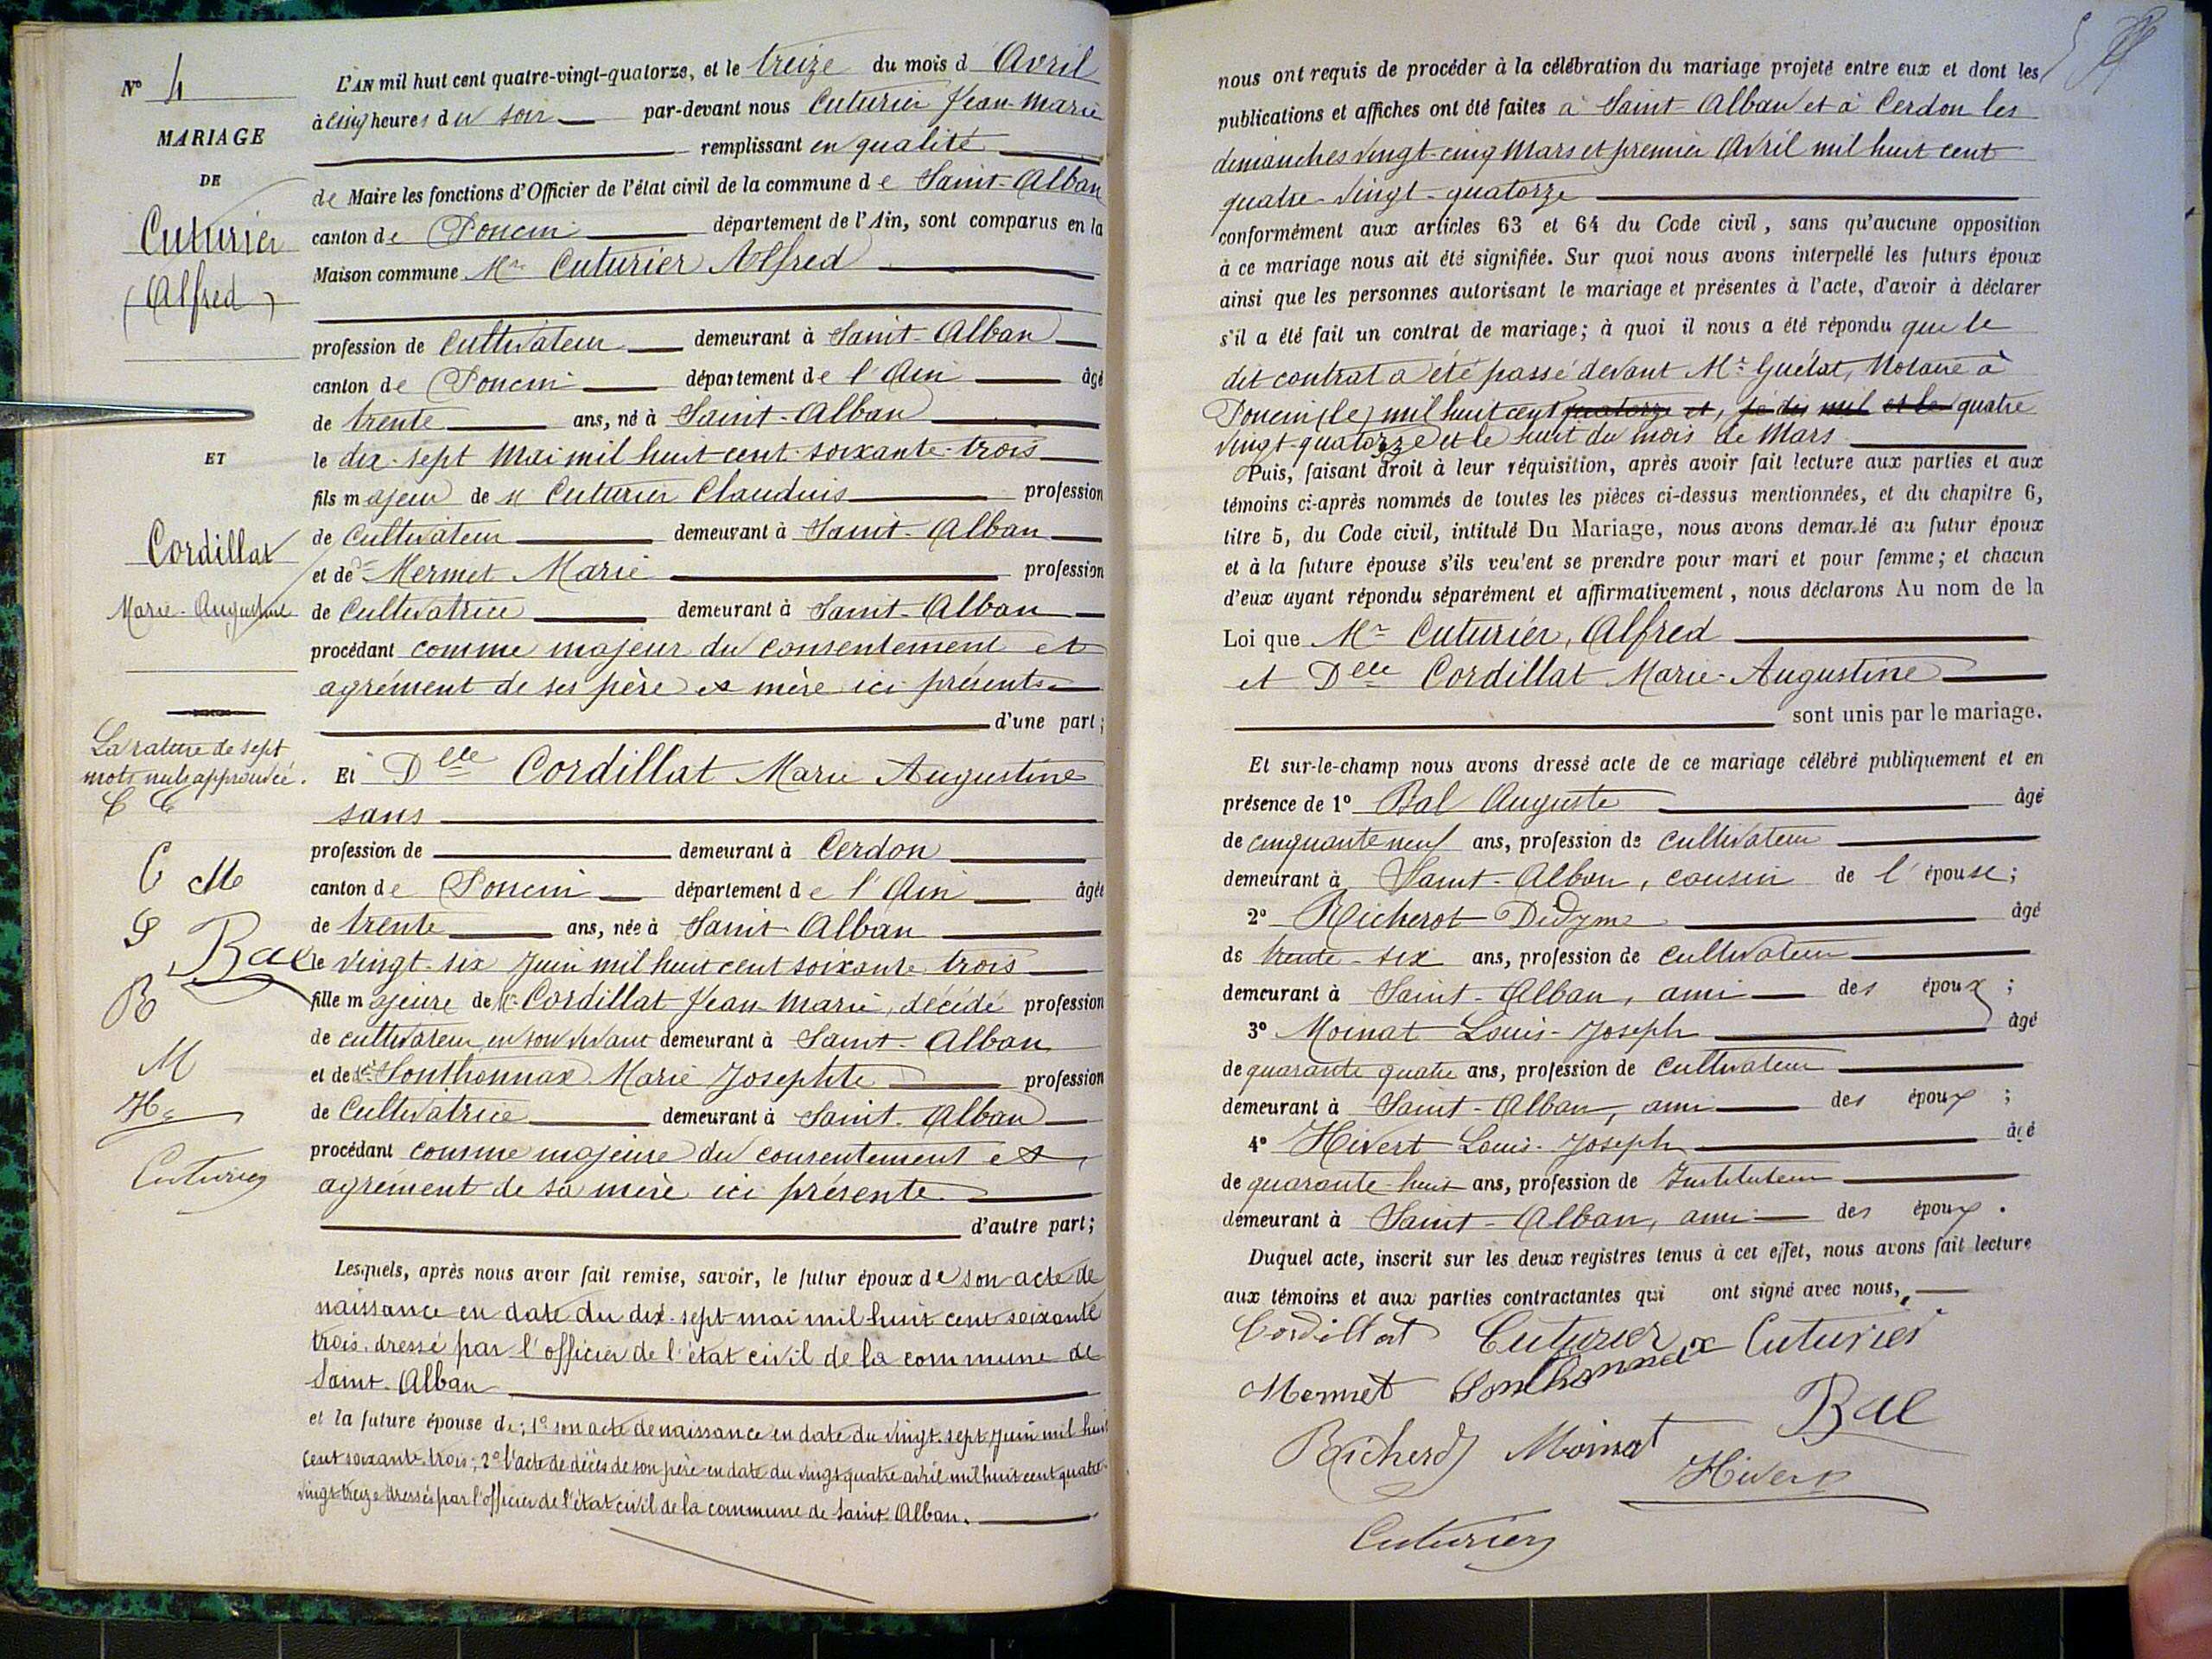 N° 4
MARIAGE
DE
Cuturier
(Alfred)
ET
Cordillat
Marie-Augustine
La rature de sept
mots nuls approuvée.
C C
C M
S Bal
R
M
H
Cuturier
L'AN mil huit cent quatre-vingt-quatorze, et le treize du mois d'Avril
à cinq heures du soir par-devant nous Cuturier Jean-Marie
remplissant en qualité
de Maire les fonctions d'Officier de l'état civil de la commune de Saint-Alban
canton de Poncin département de l'Ain, sont comparus en la
Maison commune Mr Cuturier Alfred
profession de Cultivateur demeurant à Saint-Alban
canton de Poncin département de l'Ain âgé
de trente ans, né à Saint-Alban
le dix-sept Mai mil huit cent soixante-trois
fils majeur de Cuturier Claudius profession
de Cultivateur demeurant à Saint-Alban
et de Mermet Marie profession
de Cultivatrice demeurant à Saint-Alban
procédant comme majeur du consentement et
agrément de ses père et mère ici présents
d'une part;
Et Delle Cordillat Marie Augustine
sans
profession de demeurant à Cerdon
canton de Poncin département de l'Ain âgée
de trente ans, née à Saint-Alban
le vingt-six Juin mil huit cent soixante trois
fille majeure de Cordillat Jean-Marie, décédé profession
de cultivateur en son vivant demeurant à Saint-Alban
et de Sonthonnax Marie Josephte profession
de Cultivatrice demeurant à Saint-Alban
procédant comme majeure du consentement et
agrément de sa mère ici présente
d'autre part;
Lesquels, après nous avoir fait remise, savoir, le futur époux de son acte de
naissance en date du dix-sept mai mil huit cent soixante
trois, dressé par l'officier de l'état civil de la commune de
Saint-Alban
et la future épouse de; 1° son acte de naissance en date du vingt-sept Juin mil huit
cent soixante-trois; 2° l'acte de décès de son père en date du vingt quatre avril mil huit cent quatre-
vingt-treize dressés par l'officier de l'état civil de la commune de Saint-Alban.
nous ont requis de procéder à la célébration du mariage projeté entre eux et dont les
publications et affiches ont été faites à Saint-Alban et à Cerdon les
dimanches vingt-cinq Mars et premier Avril mil huit cent
quatre-vingt-quatorze
conformément aux articles 63 et 64 du Code civil, sans qu'aucune opposition
à ce mariage nous ait été signifiée. Sur quoi nous avons interpellé les futurs époux
ainsi que les personnes autorisant le mariage et présentes à l'acte, d'avoir à déclarer
s'il a été fait un contrat de mariage; à quoi il nous a été répondu que le
dit contrat a été passé devant Mr Guélat, Notaire à
Poncin (le) mil huit cent quatorze et, mil et le quatre
vingt-quatorze et le huit du mois de Mars
Puis, faisant droit à leur réquisition, après avoir fait lecture aux parties et aux
témoins ci-après nommés de toutes les pièces ci-dessus mentionnées, et du chapitre 6,
titre 5, du Code civil, intitulé Du Mariage, nous avons demandé au futur époux
et à la future épouse s'ils veulent se prendre pour mari et pour femme; et chacun
d'eux ayant répondu séparément et affirmativement, nous déclarons Au nom de la
Loi que Mr Cuturier, Alfred
et Delle Cordillat Marie-Augustine
sont unis par le mariage.
Et sur-le-champ nous avons dressé acte de ce mariage célébré publiquement et en
présence de 1° Bal Auguste âgé
de cinquante neuf ans, profession de cultivateur
demeurant à Saint-Alban, cousin de l'épouse;
2° Richerot Didyme âgé
de trente-six ans, profession de cultivateur
demeurant à Saint-Alban, ami des époux;
3° Moinat Louis-Joseph âgé
de quarante quatre ans, profession de Cultivateur
demeurant à Saint-Alban, ami des époux;
4° Hivert Louis-Joseph âgé
de quarante-huit ans, profession de Instituteur
demeurant à Saint-Alban, ami des époux.
Duquel acte, inscrit sur les deux registres tenus à cet effet, nous avons fait lecture
aux témoins et aux parties contractantes qui ont signé avec nous,
Cordillat Cuturier Cuturier
Mermet Sonthonnax Bal
Moinat
Hivert
Cuturier